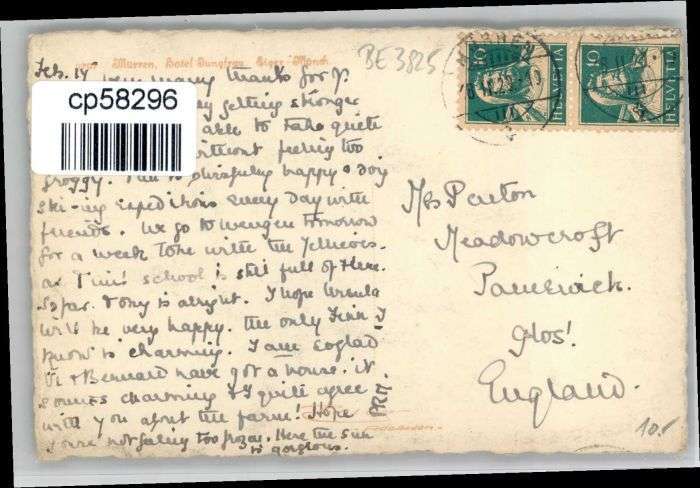 Mürren, Hotel Jungfrau, Eiger-Mönch
BE 3825
Feb. 14
many thanks for p.
cp58296
getting stronger
able to take quite
without feeling too
groggy. Paul is blissfully happy & doing
ski-ing expeditions every day with
friends. We go to Wengen tomorrow
for a week to be with the
as school is still full of there.
So far Tony is alright. I hope Ursula
will be very happy. The only Finn I
know is charming. I am so glad
Vi & Bernard have got a house. it
sounds charming & I quite agree
with you about the farm! Hope
you're not feeling too frozen. Here the sun
is gorgeous.
10
HELVETIA
10
HELVETIA
Mrs Penton
Meadowcroft
Painswick.
Glos!
England.
10.-